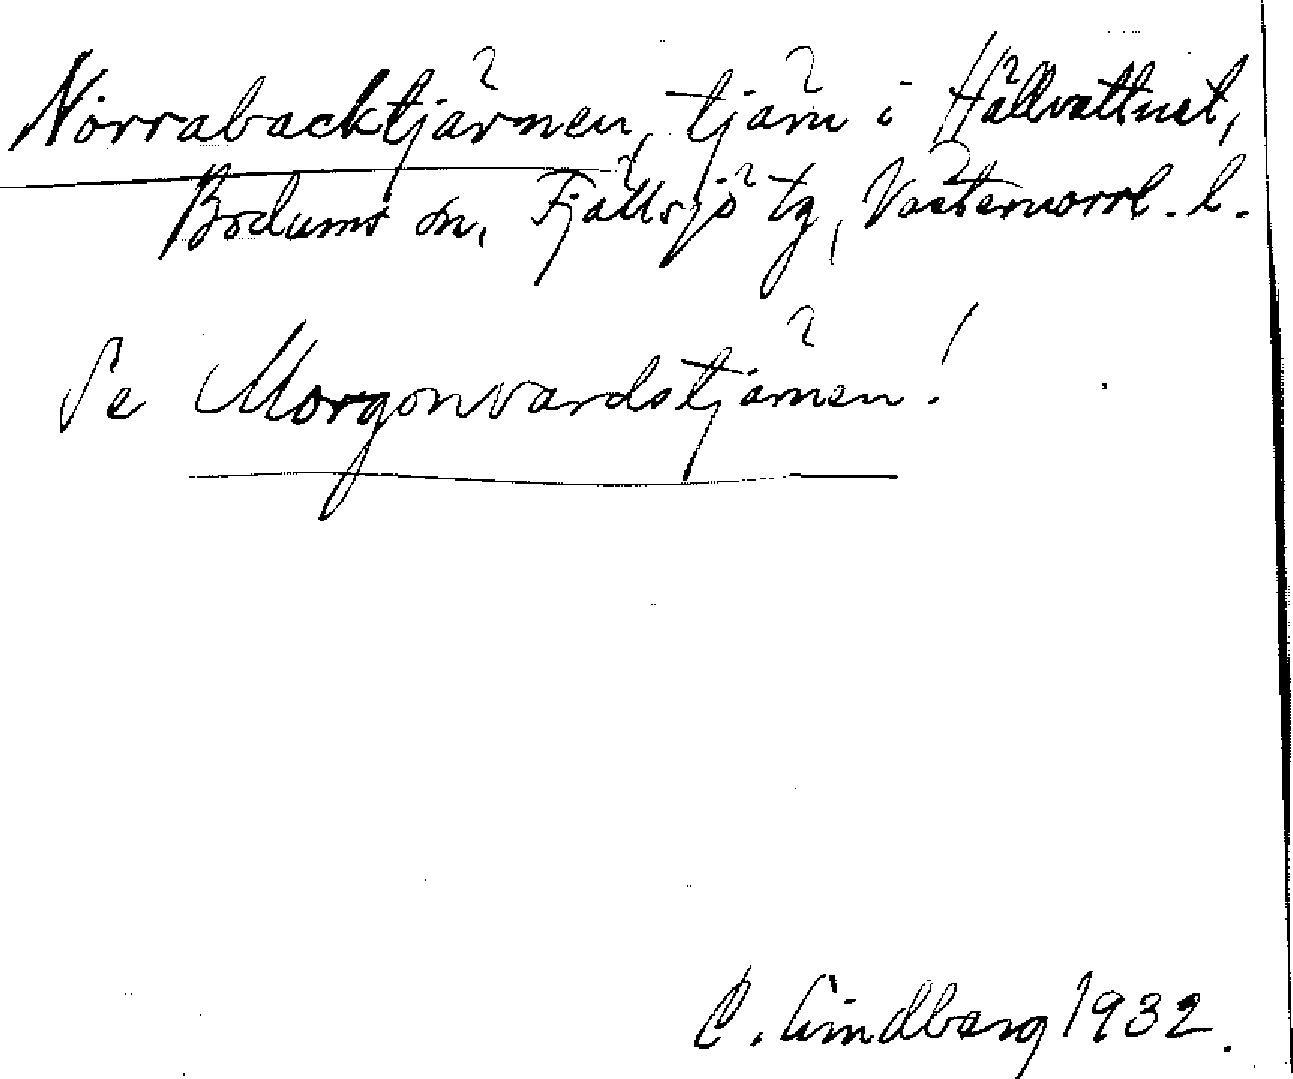 Norrabacktjärnen, tjärn i Hällvattnet,
Bodums sn, Fjällsjö tg, Västernorrl. l.
Se Morgonvardstjärnen!
C. Lindberg 1932.